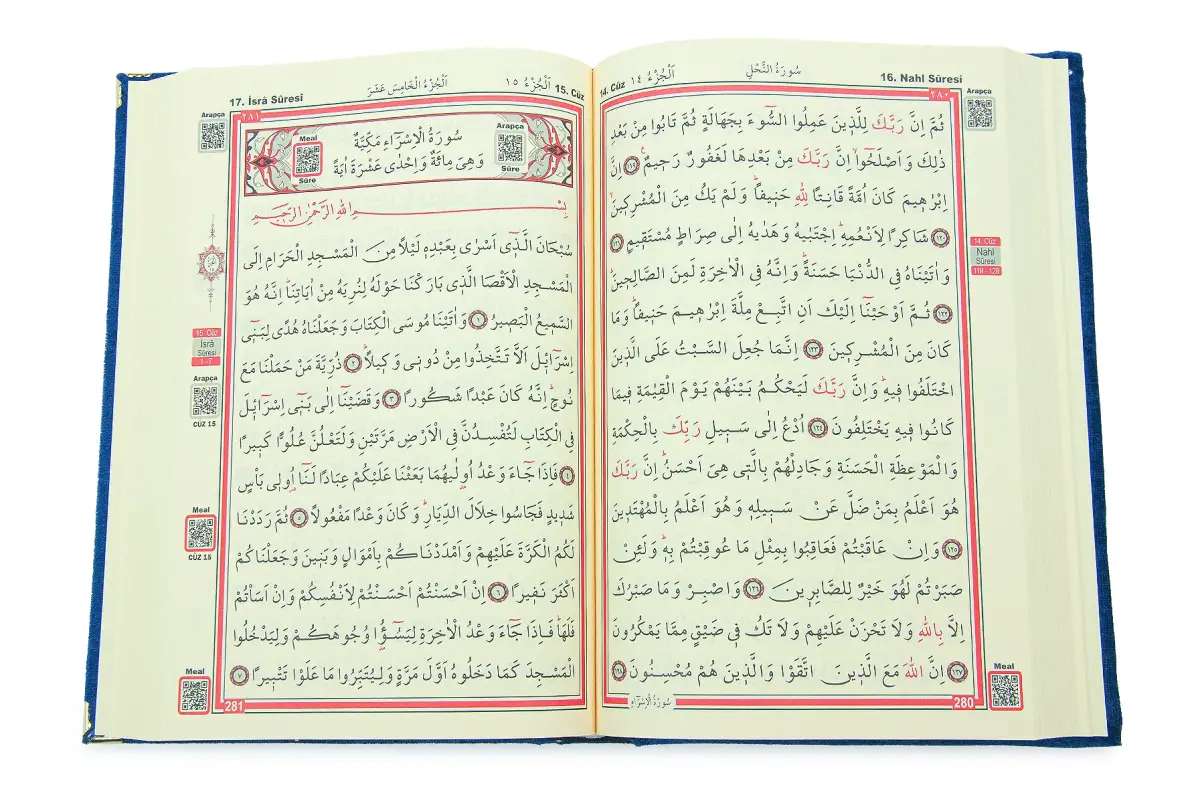 16. Nahl Sûresi
سُورَةُ النَّحْلِ
اَلْجُزْءُ ١٤
14. Cüz
٢٨٠
Arapça
ثُمَّ اِنَّ رَبَّكَ لِلَّذٖينَ عَمِلُوا السُّٓوءَ بِجَهَالَةٍ ثُمَّ تَابُوا مِنْ بَعْدِ
ذٰلِكَ وَاَصْلَحُٓوا اِنَّ رَبَّكَ مِنْ بَعْدِهَا لَغَفُورٌ رَحٖيمٌ ﴿١١٩﴾ اِنَّ
اِبْرٰهٖيمَ كَانَ اُمَّةً قَانِتًا لِلّٰهِ حَنٖيفًاؕ وَلَمْ يَكُ مِنَ الْمُشْرِكٖينَ
﴿١٢٠﴾ شَاكِرًا لِاَنْعُمِهٖؕ اِجْتَبٰيهُ وَهَدٰيهُ اِلٰى صِرَاطٍ مُسْتَقٖيمٍ ﴿١٢١﴾
وَاٰتَيْنَاهُ فِي الدُّنْيَا حَسَنَةًؕ وَاِنَّهُ فِي الْاٰخِرَةِ لَمِنَ الصَّالِحٖينَؕ
﴿١٢٢﴾ ثُمَّ اَوْحَيْنَٓا اِلَيْكَ اَنِ اتَّبِعْ مِلَّةَ اِبْرٰهٖيمَ حَنٖيفًاؕ وَمَا
كَانَ مِنَ الْمُشْرِكٖينَ ﴿١٢٣﴾ اِنَّمَا جُعِلَ السَّبْتُ عَلَى الَّذٖينَ
اخْتَلَفُوا فٖيهِؕ وَاِنَّ رَبَّكَ لَيَحْكُمُ بَيْنَهُمْ يَوْمَ الْقِيٰمَةِ فٖيمَا
كَانُوا فٖيهِ يَخْتَلِفُونَ ﴿١٢٤﴾ اُدْعُ اِلٰى سَبٖيلِ رَبِّكَ بِالْحِكْمَةِ
وَالْمَوْعِظَةِ الْحَسَنَةِ وَجَادِلْهُمْ بِالَّتٖي هِيَ اَحْسَنُؕ اِنَّ رَبَّكَ
هُوَ اَعْلَمُ بِمَنْ ضَلَّ عَنْ سَبٖيلِهٖ وَهُوَ اَعْلَمُ بِالْمُهْتَدٖينَ
﴿١٢٥﴾ وَاِنْ عَاقَبْتُمْ فَعَاقِبُوا بِمِثْلِ مَا عُوقِبْتُمْ بِهٖؕ وَلَئِنْ
صَبَرْتُمْ لَهُوَ خَيْرٌ لِلصَّابِرٖينَ ﴿١٢٦﴾ وَاصْبِرْ وَمَا صَبْرُكَ
اِلَّا بِاللّٰهِ وَلَا تَحْزَنْ عَلَيْهِمْ وَلَا تَكُ فٖي ضَيْقٍ مِمَّا يَمْكُرُونَ
﴿١٢٧﴾ اِنَّ اللّٰهَ مَعَ الَّذٖينَ اتَّقَوْا وَالَّذٖينَ هُمْ مُحْسِنُونَ ﴿١٢٨﴾
14. Cüz
Nahl
Sûresi
119 - 128
Meal
280
سُورَةُ الْاِسْرَاءِ
17. İsrâ Sûresi
اَلْجُزْءُ الْخَامِسَ عَشَرَ
اَلْجُزْءُ ١٥
15. Cüz
٢٨١
Arapça
Arapça
Sûre
Meal
Sûre
سُورَةُ الْاِسْرَٓاءِ مَكِّيَّةٌ
وَهِيَ مِائَةٌ وَاِحْدٰى عَشْرَةَ اٰيَةً
بِسْمِ اللّٰهِ الرَّحْمٰنِ الرَّحٖيمِ
سُبْحَانَ الَّذٖٓي اَسْرٰى بِعَبْدِهٖ لَيْلًا مِنَ الْمَسْجِدِ الْحَرَامِ اِلَى
الْمَسْجِدِ الْاَقْصَا الَّذٖي بَارَكْنَا حَوْلَهُ لِنُرِيَهُ مِنْ اٰيَاتِنَاؕ اِنَّهُ هُوَ
السَّمٖيعُ الْبَصٖيرُ ﴿١﴾ وَاٰتَيْنَا مُوسَى الْكِتَابَ وَجَعَلْنَاهُ هُدًى لِبَنٖٓي
اِسْرَٓائٖلَ اَلَّا تَتَّخِذُوا مِنْ دُونٖي وَكٖيلًاؕ ﴿٢﴾ ذُرِّيَّةَ مَنْ حَمَلْنَا مَعَ
نُوحٍؕ اِنَّهُ كَانَ عَبْدًا شَكُورًا ﴿٣﴾ وَقَضَيْنَٓا اِلٰى بَنٖٓي اِسْرَٓائٖلَ
فِي الْكِتَابِ لَتُفْسِدُنَّ فِي الْاَرْضِ مَرَّتَيْنِ وَلَتَعْلُنَّ عُلُوًّا كَبٖيرًا
﴿٤﴾ فَاِذَا جَٓاءَ وَعْدُ اُو۫لٰيهُمَا بَعَثْنَا عَلَيْكُمْ عِبَادًا لَنَٓا اُو۬لٖي بَأْسٍ
شَدٖيدٍ فَجَاسُوا خِلَالَ الدِّيَارِؕ وَكَانَ وَعْدًا مَفْعُولًا ﴿٥﴾ ثُمَّ رَدَدْنَا
لَكُمُ الْكَرَّةَ عَلَيْهِمْ وَاَمْدَدْنَاكُمْ بِاَمْوَالٍ وَبَنٖينَ وَجَعَلْنَاكُمْ
اَكْثَرَ نَفٖيرًا ﴿٦﴾ اِنْ اَحْسَنْتُمْ اَحْسَنْتُمْ لِاَنْفُسِكُمْ وَاِنْ اَسَأْتُمْ
فَلَهَاؕ فَاِذَا جَٓاءَ وَعْدُ الْاٰخِرَةِ لِيَسُٓؤُ۫ا وُجُوهَكُمْ وَلِيَدْخُلُوا
الْمَسْجِدَ كَمَا دَخَلُوهُ اَوَّلَ مَرَّةٍ وَلِيُتَبِّرُوا مَا عَلَوْا تَتْبٖيرًا ﴿٧﴾
15. Cüz
İsrâ
Sûresi
1 - 7
Arapça
CÜZ 15
Meal
CÜZ 15
Meal
281